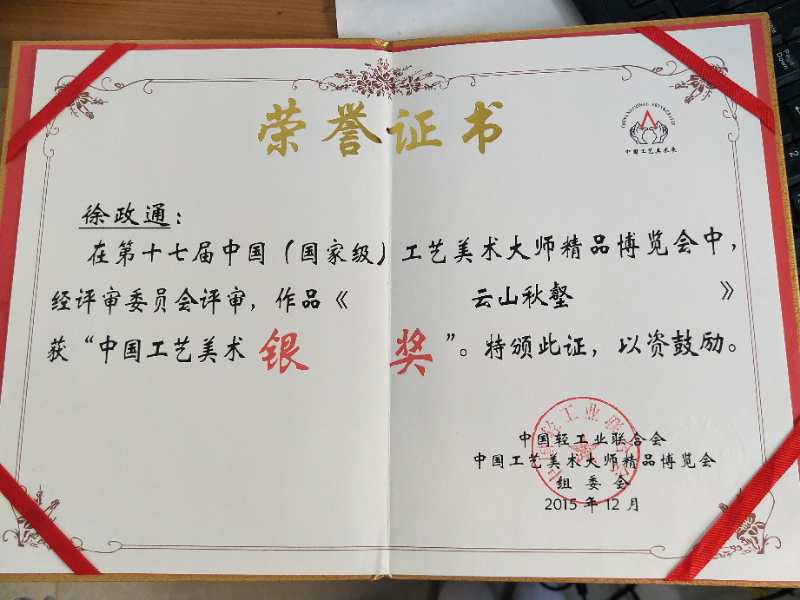 荣誉证书
中国工艺美术展
徐政通：
在第十七届中国（国家级）工艺美术大师精品博览会中，
经评审委员会评审，作品《 云山秋壑 》
获“中国工艺美术 银 奖”。特颁此证，以资鼓励。
中国轻工业联合会
中国工艺美术大师精品博览会
组委会
2015年12月